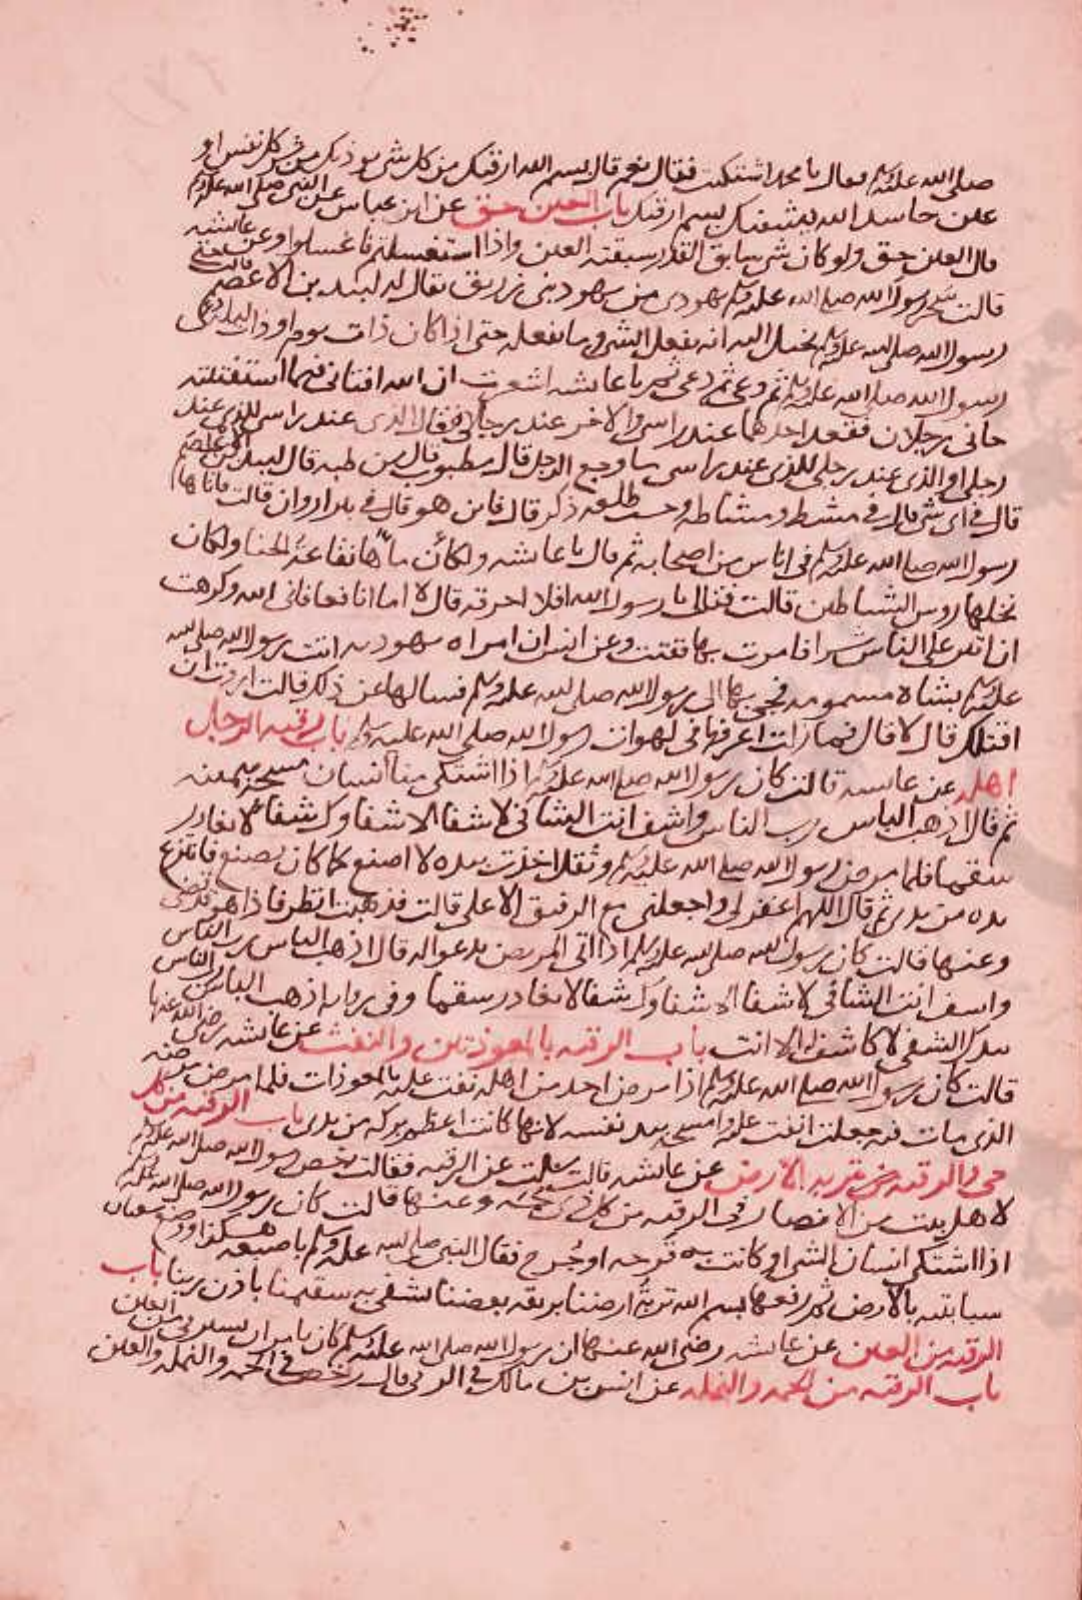 صلى الله عليه وسلم فقال يا محمد اشتكيت فقال نعم قال بسم الله ارقيك من كل شي يوذيك من شر كل نفس او
عين حاسد الله يشفيك بسم ارقيك باب العين حق عن ابن عباس عن النبي صلى الله عليه وسلم
قال العين حق ولو كان شي سابق القدر سبقته العين واذا استغسلتم فاغسلوا وعن عايشه
قالت سحر رسول الله صلى الله عليه وسلم يهودي من يهود بني زريق يقال له لبيد بن الاعصم قالت حتى
رسول الله صلى الله عليه وسلم يخيل اليه انه يفعل الشي وما يفعله حتى اذا كان ذات يوم او ذات ليله دعى
رسول الله صلى الله عليه وسلم ثم دعى ثم دعى ثم يا عايشه اشعرت ان الله افتاني فيما استفتيته
جاني رجلان فقعد احدهما عند راسي والاخر عند رجلي فقال الذي عند راسي للذي عند
رجلي او الذي عند رجلي للذي عند راسي ما وجع الرجل قال مطبوب قال من طبه قال لبيد بن الاعصم
قال في اي شي قال في مشط ومشاطه وجب طلعه ذكر قال فاين هو قال في بير اروان قالت فاتاها
رسول الله صلى الله عليه وسلم في اناس من اصحابه ثم قال يا عايشه ولكان ماها نقاعة الحنا ولكان
نخلها روس الشياطين قالت فقال يا رسول الله افلا احرقته قال لا اما انا فعافاني الله وكرهت
ان اثير على الناس شرا فامرت بها فدفنت وعن انس ان امراه يهوديه اتت رسول الله صلى الله
عليه وسلم بشاه مسمومه فجي بها الى رسول الله صلى الله عليه وسلم فسالها عن ذلك قالت اردت ان
اقتلك قال لا قال فما زلت اعرفها في لهوات رسول الله صلى الله عليه وسلم باب رقيه الرجل
اهله عن عايشه قالت كان رسول الله صلى الله عليه وسلم اذا اشتكى منا انسان مسحه بيمينه
ثم قال اذهب الباس رب الناس واشف انت الشافي لا شفا الا شفاوك شفا لا يغادر
سقما فلما مرض رسول الله صلى الله عليه وسلم وثقل اخذت بيده لا اصنع كما كان يصنع فانتزع
يده من يدي ثم قال اللهم اغفر لي واجعلني مع الرفيق الاعلى قالت فذهبت انظر فاذا هو قد قضى
وعنها قالت كان رسول الله صلى الله عليه وسلم اذا اتى المريض يدعو له قال اذهب الباس رب الناس
واشف انت الشافي لا شفا الا شفاوك شفا لا يغادر سقما وفي روايه اذهب الباس رب الناس
بيدك الشفى لا كاشف له الا انت باب الرقيه بالمعوذتين والنفث عن عايشه رضي الله عنها
قالت كان رسول الله صلى الله عليه وسلم اذا مرض احد من اهله نفث عليه بالمعوذات فلما مرض مرضه
الذي مات فيه جعلت انفث عليه وامسحه بيد نفسه لانها كانت اعظم بركه من يدي باب الرقيه من كل
حمى والرقيه من تربه الارض عن عايشه قالت سيلت عن الرقيه فقالت رخص رسول الله صلى الله عليه وسلم
لاهل بيت من الانصار في الرقيه من كل ذي حمه وعنها قالت كان رسول الله صلى الله عليه وسلم
اذا اشتكى انسان الشي او كانت به قرحه او جرح فقال النبي صلى الله عليه وسلم باصبعه هكذا ووضع سفيان
سبابته بالارض ثم رفعها بسم الله تربة ارضنا بريقه بعضنا لشفى به سقيمنا باذن ربنا باب
الرقيه من العين عن عايشه رضي الله عنها ان رسول الله صلى الله عليه وسلم كان يامر ان يسترقى من العين
باب الرقيه من الحمه والنمله عن انس بن مالك في الرقى قال رخص في الحمه والنمله والعين